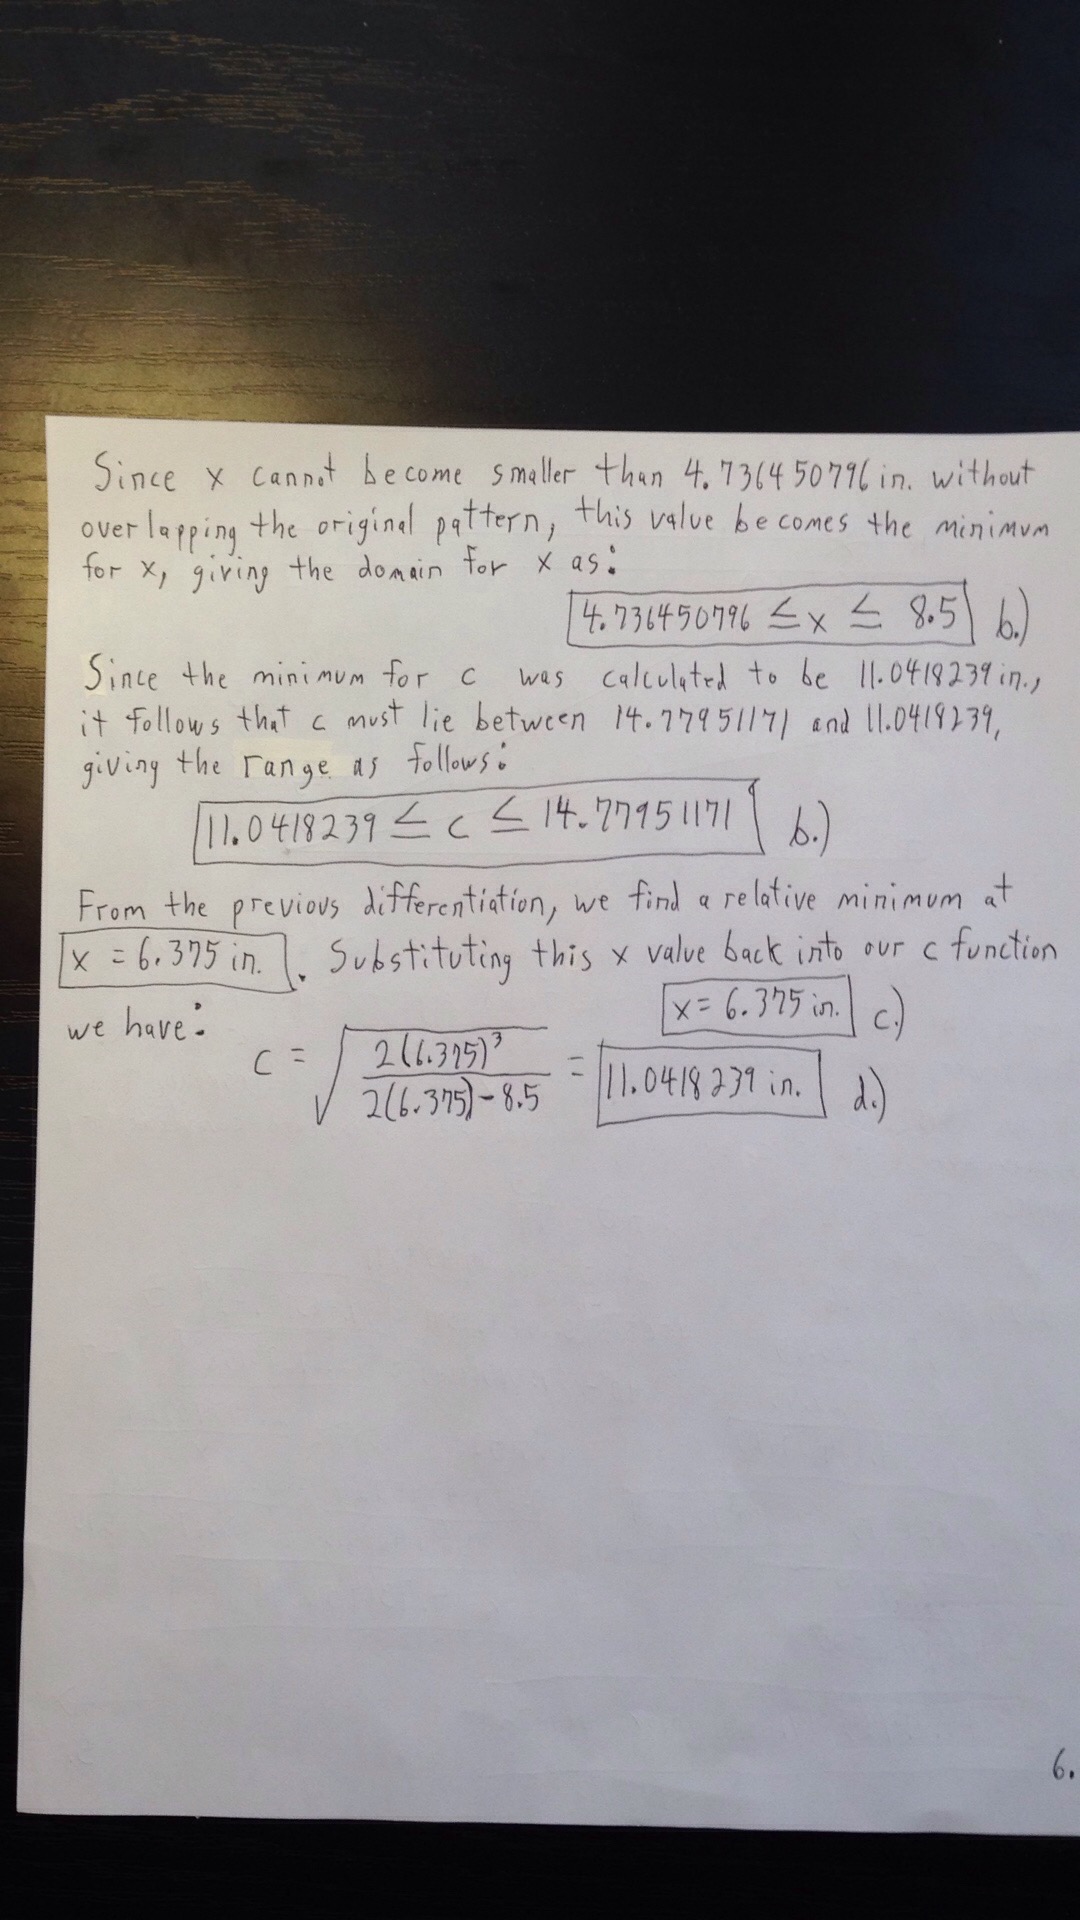 Since x cannot become smaller than 4.736450796 in. without
overlapping the original pattern, this value becomes the minimum
for x, giving the domain for x as:
4.736450796 ≤ x ≤ 8.5 b.)
Since the minimum for c was calculated to be 11.0418239 in.,
it follows that c must lie between 14.77951171 and 11.0418239,
giving the range as follows:
11.0418239 ≤ c ≤ 14.77951171 b.)
From the previous differentiation, we find a relative minimum at
x = 6.375 in. . Substituting this x value back into our c function
we have:
x = 6.375 in. c.)
c = √(2(6.375)³ / 2(6.375) - 8.5) = 11.0418239 in. d.)
6.